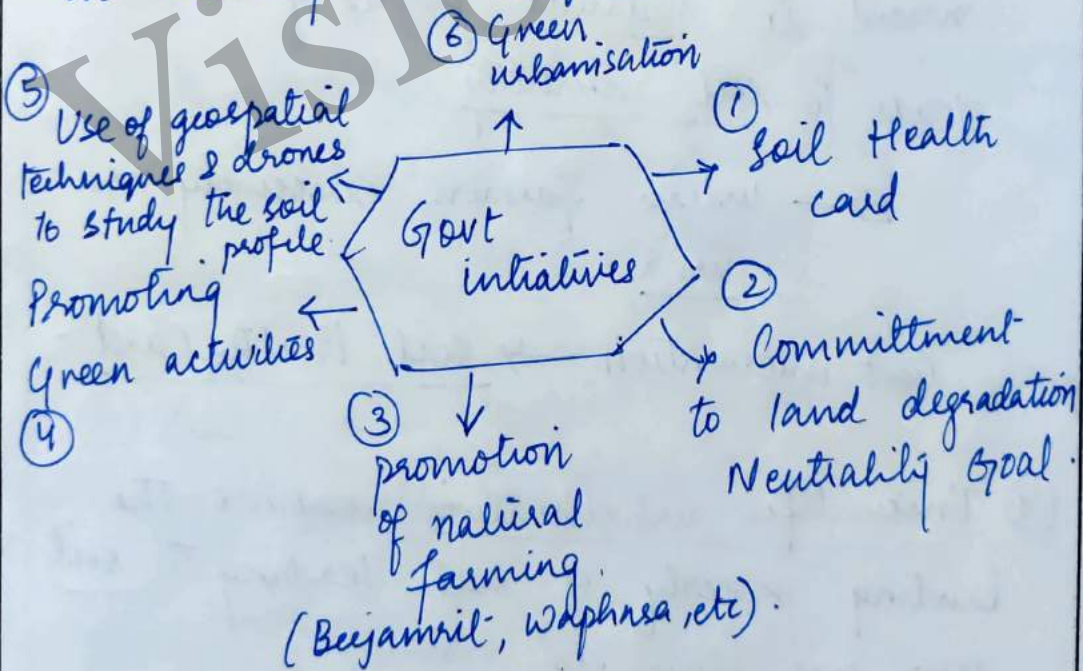 Visio
⑥ Green
urbanisation
①
Soil Health
card
②
Committment
to land degradation
Neutrality Goal.
③
promotion
of natural
farming.
(Beejamrit, waphasa, etc).
Promoting
Green activities
④
⑤
Use of geospatial
techniques & drones
to study the soil
profile.
Govt
intiatives